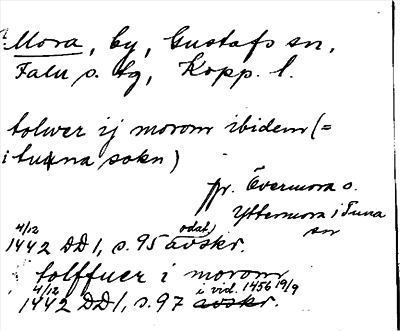 Mora, by, Gustafs sn,
Falu s. tg, Kopp. l.
tolwer ij morom ibidem (=
i tuna sokn)
fr. Övermora o.
Yttermora i Tuna
sn
4/12 odat)
1442 DD 1, s. 95 avskr.
tolffuer i morom
4/12 i vid. 1456 19/9
1442 DD 1, s. 97 avskr.